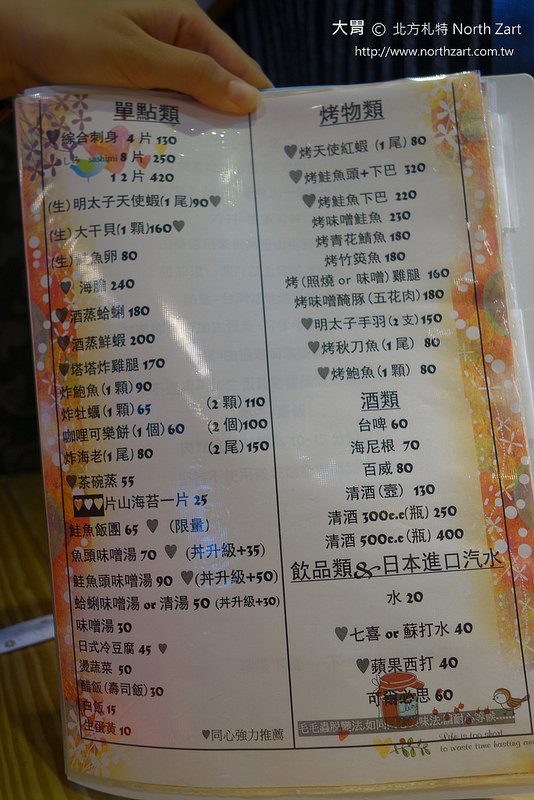 大胃 © 北方札特 North Zart
http://www.northzart.com.tw
單點類
♥綜合刺身 4 片 130
sashimi 8 片 250
1 2 片 420
(生) 明太子天使蝦(1 尾)90♥
(生) 大干貝(1 顆)160♥
(生) 魚卵 80
♥ 海膽 240
♥酒蒸蛤蜊 180
♥酒蒸鮮蝦 200
♥塔塔炸雞腿 170
炸鮑魚(1 顆)90
炸牡蠣(1 顆) 65 (2 顆)110
咖哩可樂餅(1 個) 60 (2 個)100
炸海老(1 尾) 80 (2 尾)150
♥茶碗蒸 55
♥♥♥片山海苔一片 25
鮭魚飯團 65 ♥ (限量)
魚頭味噌湯 70 ♥ (丼升級+35)
鮭魚頭味噌湯 90 ♥(丼升級+50)
蛤蜊味噌湯 or 清湯 50 (丼升級+30)
味噌湯 30
日式冷豆腐 45 ♥
燙蔬菜 50
醋飯(壽司飯)30
白飯 15
生蛋黃 10
♥同心強力推薦
烤物類
♥烤天使紅蝦 (1 尾) 80
♥烤鮭魚頭+下巴 320
♥烤鮭魚下巴 220
烤味噌鮭魚 230
烤青花鯖魚 180
烤竹筴魚 180
烤(照燒 or 味噌)雞腿 160
烤味噌醃豚(五花肉)180
♥明太子手羽(2 支)150
♥烤秋刀魚(1 尾) 80
♥烤鮑魚(1 顆) 80
酒類
台啤 60
海尼根 70
百威 80
清酒(壺) 130
清酒 300c.c(瓶) 250
清酒 500c.c(瓶) 400
飲品類&日本進口汽水
水 20
♥七喜 or 蘇打水 40
♥蘋果西打 40
可爾必思 60
毛毛蟲脫變法,如同
Life is too short
to waste time hasting an